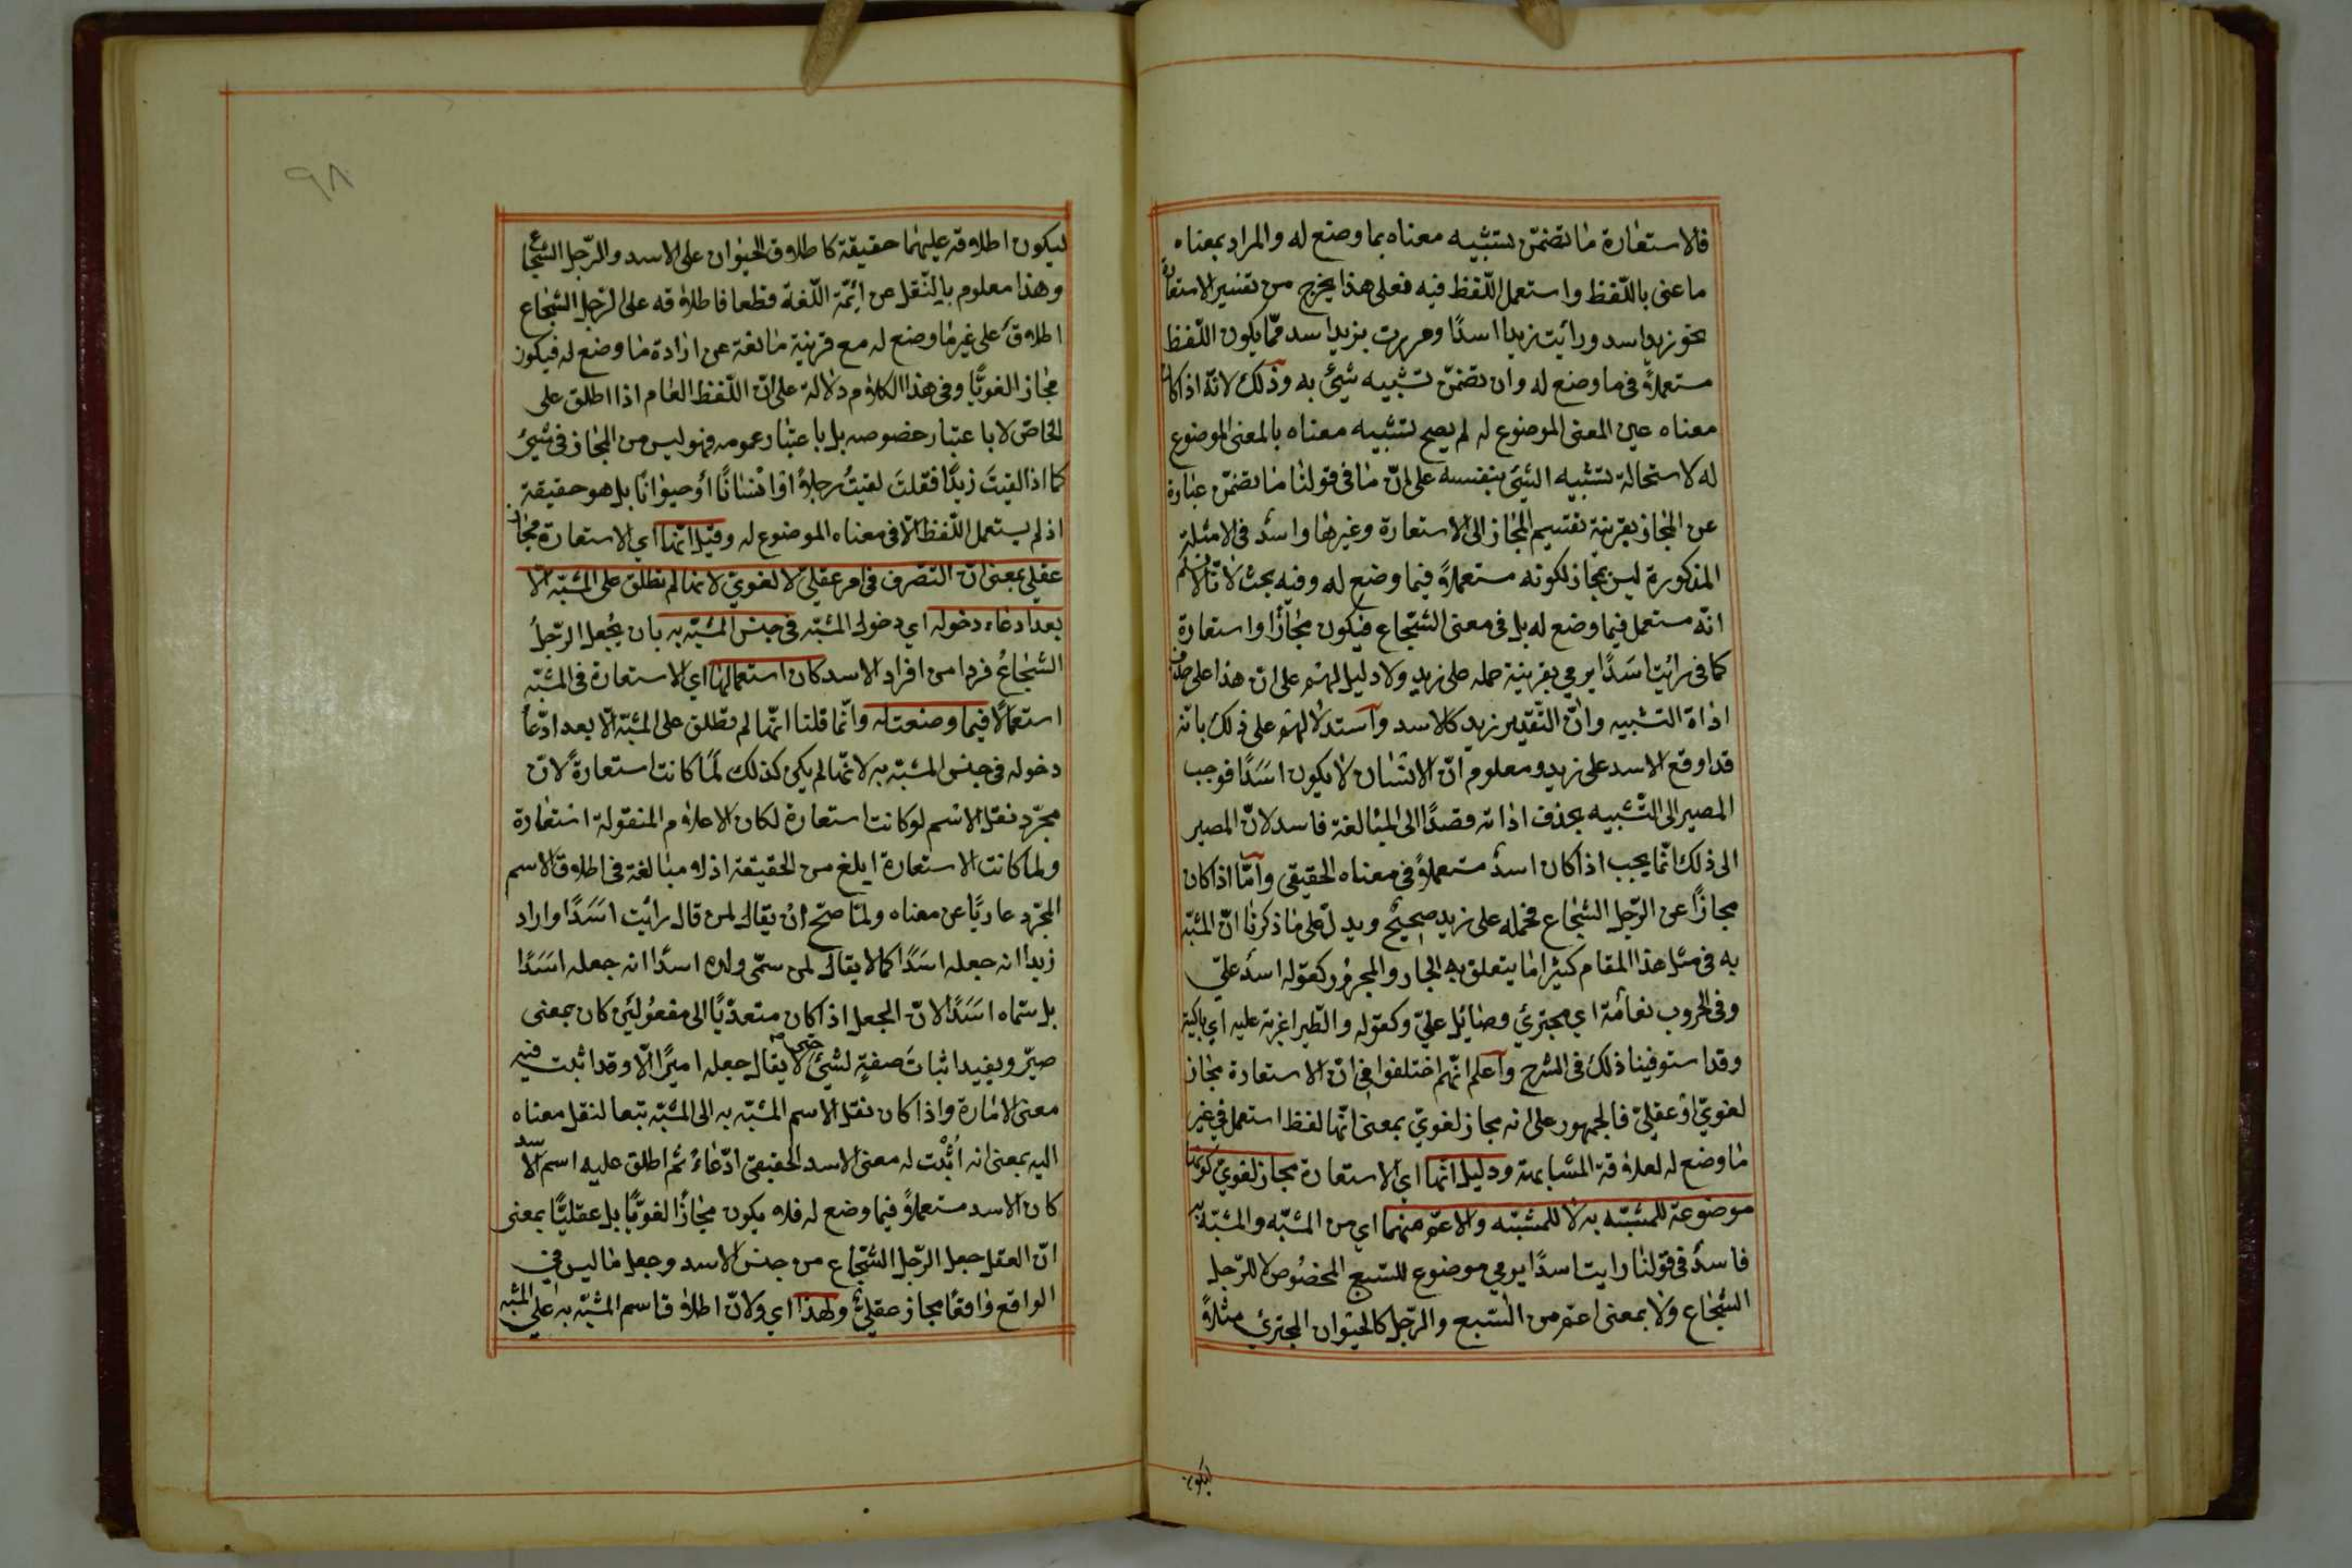 فالاستعارة ما تضمّن تشبيه معناه بما وضع له والمراد بمعناه
ما عنى باللّفظ واستعمل اللّفظ فيه فعلى هذا يخرج من تفسير الاستعارة
نحو زيد اسد ورأيت زيدا اسدًا ومررت بزيد اسد ممّا يكون اللّفظ
مستعملاً فى ما وضع له وان تضمّن تشبيه شيئ به وذلك لانّه اذا كان
معناه عين المعنى الموضوع له لم يصح تشبيه معناه بالمعنى الموضوع
له لاستحالة تشبيه الشيئ بنفسه على انّ ما فى قولنا ما تضمّن عبارة
عن المجاز بقرينة تقسيم المجاز الى الاستعارة وغيرها واسد فى الامثلة
المذكورة ليس بمجاز لكونه مستعملاً فيما وضع له وفيه بحث لانّا لا نسلم
انّه مستعمل فيما وضع له بل فى معنى الشجّاع فيكون مجازًا واستعارة
كما فى رأيت اسَدًا يرمي بقرينة حمله على زيد ولا دليل لهم على ان هذا على حذف
اداة التشبيه وانّ التّقدير زيد كالاسد واستدلالهم على ذلك بانه
قد اوقع الاسد على زيد ومعلوم انّ الانسان لا يكون اسَدًا فوجب
المصير الى التّشبيه بحذف اداته قصدًا الى المبالغة فاسد لانّ المصير
الى ذلك انّما يجب اذا كان اسد مستعملاً فى معناه الحقيقى وامّا اذا كان
مجازًا عن الرّجل الشجاع فحمله على زيد صحيح ويدلّ على ما ذكرنا انّ المشبّه
به فى مثل هذا المقام كثيرا ما يتعلق به الجار والمجرور كقوله اسد عليّ
وفى الحروب نعامة اي مجترئ وصائل عليّ وكقوله والطّير اغربة عليه اي باكية
وقد استوفينا ذلك فى الشرح واعلم انّهم اختلفوا فى انّ الاستعارة مجاز
لغويّ او عقليّ فالجمهور على انه مجاز لغويّ بمعنى انّها لفظ استعمل فى غير
ما وضع له لعلاقة المشابهة ودليل انّها اي الاستعارة مجاز لغويّ كونها
موضوعة للمشبّه به لا للمشبّه ولا لاعمّ منهما اي من المشبّه والمشبّه به
فاسدٌ فى قولنا رايت اسدًا يرمي موضوع للسّبع المخصُوص لا للرّجل
الشجاع ولا بمعنى اعمّ من السّبع والرّجل كالحيوان المجترئ مثلاً
ليكون
٩٨
ليكون اطلاقه عليهما حقيقة كاطلاق الحيوان على الاسد والرّجل الشجاع
وهذا معلوم بالنّقل عن ائمّة اللّغة قطعا فاطلاقه على الرّجل الشجاع
اطلاق على غير ما وضع له مع قرينة مانعة عن ارادة ما وضع له فيكون
مجازا لغويًّا وفى هذا الكلام دلالة على انّ اللّفظ العام اذا اطلق على
الخاصّ لا باعتبار خصوصه بل باعتبار عمومه فهو ليس من المجاز فى شيئ
كما اذا لقيتَ زيدًا فقلتَ لقيتُ رجلاً او انسانًا أو حيوانًا بل هو حقيقة
اذ لم يستعمل اللّفظ الّا فى معناه الموضوع له وقيل انّها اي الاستعارة مجاز
عقلي بمعنى انّ التصّرف فى امر عقليّ لا لغويّ لانها لم تطلق على المشبّه الّا
بعد ادعاء دخوله اي دخول المشبّه فى جنس المشبّه به بان يجعل الرّجلُ
الشجاعُ فردا من افراد الاسد كان استعمالها اي الاستعارة فى المشبّه
استعمالًا فيما وضعت له وانّما قلنا انّها لم تطلق على المشبّه الّا بعد ادّعاء
دخوله فى جنس المشبّه به لانّها لم يكن كذلك لمّا كانت استعارةً لان
مجرّد نقل الاسْم لو كانت استعارة لكان الاعلام المنقولة استعارة
ولما كانت الاستعارة ابلغ من الحقيقة اذ لا مبالغة فى اطلاق الاسم
المجرّد عاريًا عن معناه ولمّا صحّ انْ يقال لمن قال رأيت اسَدًا واراد
زيدا انه جعله اسَدًا كما لا يقال لمن سمّى ولده اسدًا انه جعله اسَدًا
بل سمّاه اسَدًا لانّ الجعل اذا كان متعدّيًا الى مفعُولين كان بمعنى
صيّر ويفيد اثباتَ صفةٍ لشيئ حتى لا يقال جعله اميرًا الّا وقد اثبت فيه
معنى الامارة واذا كان نقل الاسم المشبّه به الى المشبّه تبعا لنقل معناه
اليه بمعنى انه أثبت له معنى الاسد الحقيقى ادّعاءً ثم اطلق عليه اسم الاسد
كان الاسد مستعملاً فيما وضع له فلا يكون مجازًا لغويًّا بل عقليًّا بمعنى
انّ العقل جعل الرّجل الشجاع من جنس الاسد وجعل ما ليس فى
الواقع واقعًا مجاز عقليّ ولهذا اي ولانّ اطلاق اسم المشبّه به على المشبّه